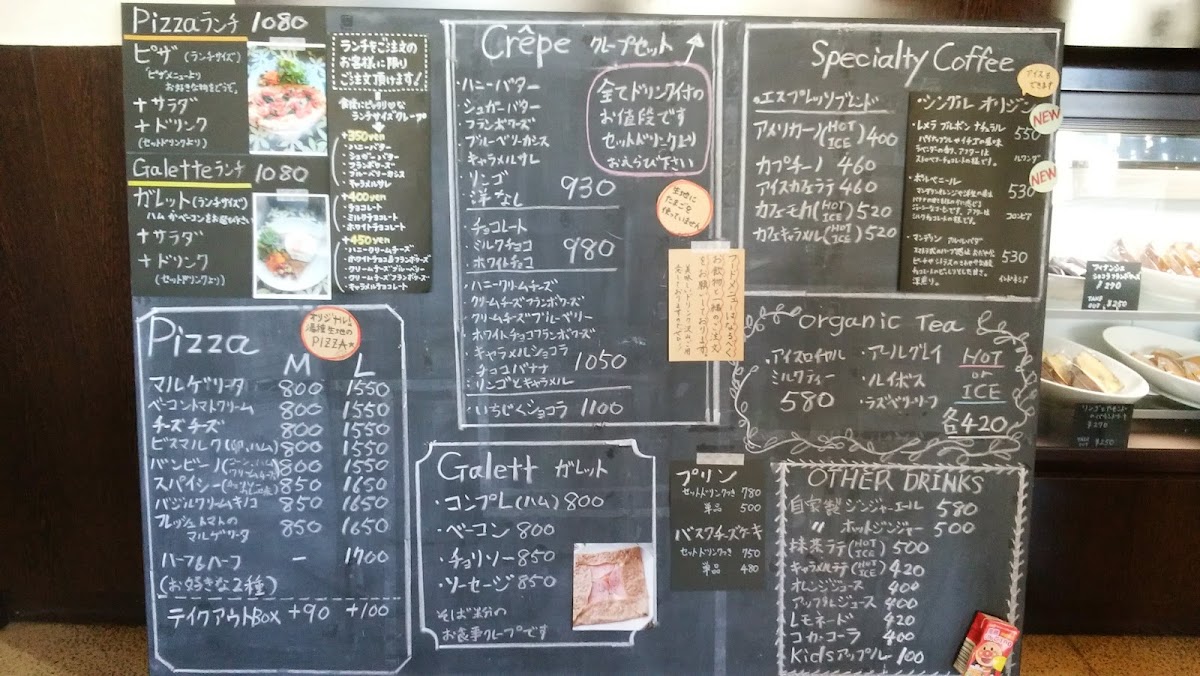 Pizzaランチ 1080
ピザ(ランチサイズ)
ピザメニューより
お好きな物をどうぞ。
+サラダ
+ドリンク
(セットドリンクより)
Galetteランチ 1080
ガレット(ランチサイズ)
ハムかベーコンをお選び下さい
+サラダ
+ドリンク
(セットドリンクより)
ランチをご注文の
お客様に限り
ご注文頂けます!
食後にピッタリ♡な
ランチサイズクレープ
+350yen
・ハニーバター
・シュガーバター
・フランボワーズ
・ブルーベリーカシス
・キャラメルサレ
+400yen
・チョコレート
・ミルクチョコレート
・ホワイトチョコレート
+450yen
・ハニークリームチーズ
・ホワイトチョコ&フランボワーズ
・クリームチーズブルーベリー
・クリームチーズフランボワーズ
・キャラメルショコラ
Pizza
オリジナル
湯種生地の
PIZZA★
M L
マルゲリータ 800 1550
ベーコントマトクリーム 800 1550
チーズチーズ 800 1550
ビスマルク(卵、ハム) 800 1550
バンビーノ(コーン、ハム クリームチーズ) 800 1550
スパイシー 850 1650
バジルクリームキノコ 850 1650
フレッシュトマトの
マルゲリータ 850 1650
ハーフ&ハーフ – 1700
(お好きな2種)
テイクアウトBOX +90 +100
Crêpe クレープセット
全てドリンク付の
お値段です
セットドリンクより
おえらび下さい
・ハニーバター
・シュガーバター
・フランボワーズ
・ブルーベリーカシス
・キャラメルサレ
・リンゴ
・洋なし 930
・チョコレート
・ミルクチョコ
・ホワイトチョコ 980
・ハニークリームチーズ
・クリームチーズフランボワーズ
・クリームチーズブルーベリー
・ホワイトチョコフランボワーズ
・キャラメルショコラ
・チョコバナナ 1050
・リンゴとキャラメル
・いちじくショコラ 1100
生地に
たまごを
使っていません
フードメニューはなるべく
お飲物と一緒のご注文
をお願いしております。
Galett ガレット
・コンプレ(ハム) 800
・ベーコン 800
・チョリソー 850
・ソーセージ 850
そば粉の
お食事クレープです
プリン
セットドリンクつき 780
単品 500
バスクチーズケーキ
セットドリンクつき 750
単品 480
Specialty Coffee
アイスも
できます
・エスプレッソブレンド
アメリカーノ(HOT ICE) 400
カプチーノ 460
アイスカフェラテ 460
カフェモカ(HOT ICE) 520
カフェキャラメル(HOT ICE) 520
・シングルオリジン
NEW
・レメラ ブルボン ナチュラル 550
ルワンダ
NEW
530
コロンビア
・マンデリン 530
organic Tea
・アイスロイヤル
ミルクティー
580
・アールグレイ
・ルイボス
・ラズベリーリーフ
HOT
or
ICE
各420
OTHER DRINKS
自家製ジンジャーエール 580
〃 ホットジンジャー 500
抹茶ラテ(HOT ICE) 500
キャラメルラテ(HOT ICE) 420
オレンジジュース 400
アップルジュース 400
レモネード 420
コカ・コーラ 400
Kidsアップル 100
アイナンシェ
ショコラフランボワーズ
¥290
TAKE OUT ¥250
¥270
TAKE OUT ¥250